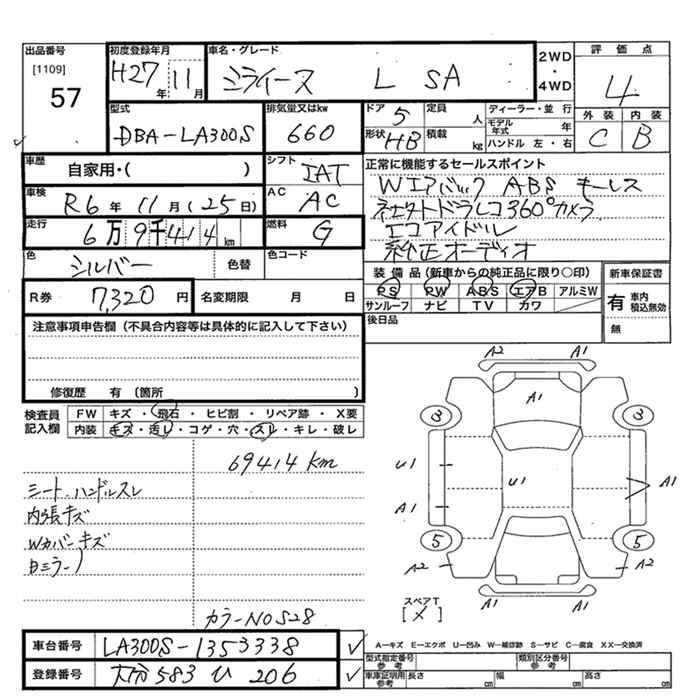 出品番号
[1109]
57
初度登録年月
H27年 11月
車名・グレード
ミライース L SA
2WD
・
4WD
評価点
4
型式
DBA-LA300S
排気量又はkw
660
ドア
5
定員
人
形状
HB
積載
kg
ディーラー・並 行
モデル年式
年
ハンドル 左・右
外装
C
内装
B
車歴
自家用・( )
シフト
IAT
正常に機能するセールスポイント
Wエアバック ABS キーレス
車検
R6年 11月(25日)
AC
AC
ドラレコ360°カメラ
走行
6万9千414km
燃料
G
エコアイドル
純正オーディオ
色
シルバー
色替
色コード
装備品(新車からの純正品に限り○印)
PS PW ABS エアB アルミW
サンルーフ ナビ TV カワ
新車保証書
有 車内積込無効
無
R券
7,320円
名変期限 月 日
後日品
注意事項申告欄(不具合内容等は具体的に記入して下さい)
修復歴 有 (箇所 )
検査員記入欄
FW キズ・飛石・ヒビ割・リペア跡・X要
内装 キズ・汚レ・コゲ・穴・スレ・キレ・破レ
69414km
シート・ハンドルスレ
内張キズ
Wカバーキズ
カラーNO S28
A2 A1
A1
3 3
U1 U1 A1
A1
5 5
A2 A2
A1
スペアT
[メ]
車台番号
LA300S-1353338
登録番号
大分583 ひ 206
A-キズ E-エクボ U-凹み W-補修跡 S-サビ C-腐食 XX-交換済
型式指定番号 参考
類別区分番号 参考
車庫証明用 参考
長さ cm
幅 cm
高さ cm